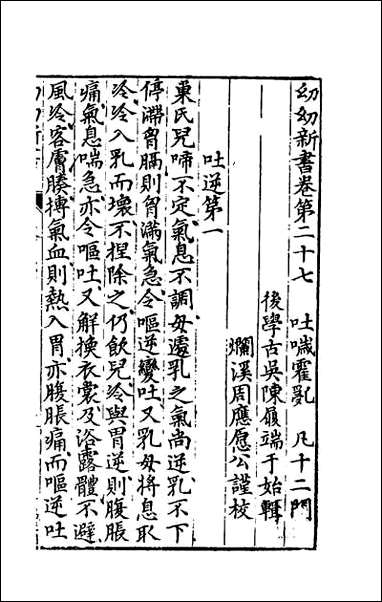 幼幼新書卷第二十七　吐哯霍亂　凡十二門
後學古吳陳履端于始輯
爛溪周應愿公謹校
吐逆第一
巢氏兒啼不定氣息不調母遽乳之氣尚逆乳不下
停滯胷膈則胷滿氣急令嘔逆變吐又乳母將息取
冷冷入乳而壞不捏除之仍飲兒冷與胃逆則腹脹
痛氣息喘急亦令嘔吐又解換衣裳及浴露體不避
風冷客膚腠搏氣血則熱入胃亦腹脹痛而嘔逆吐